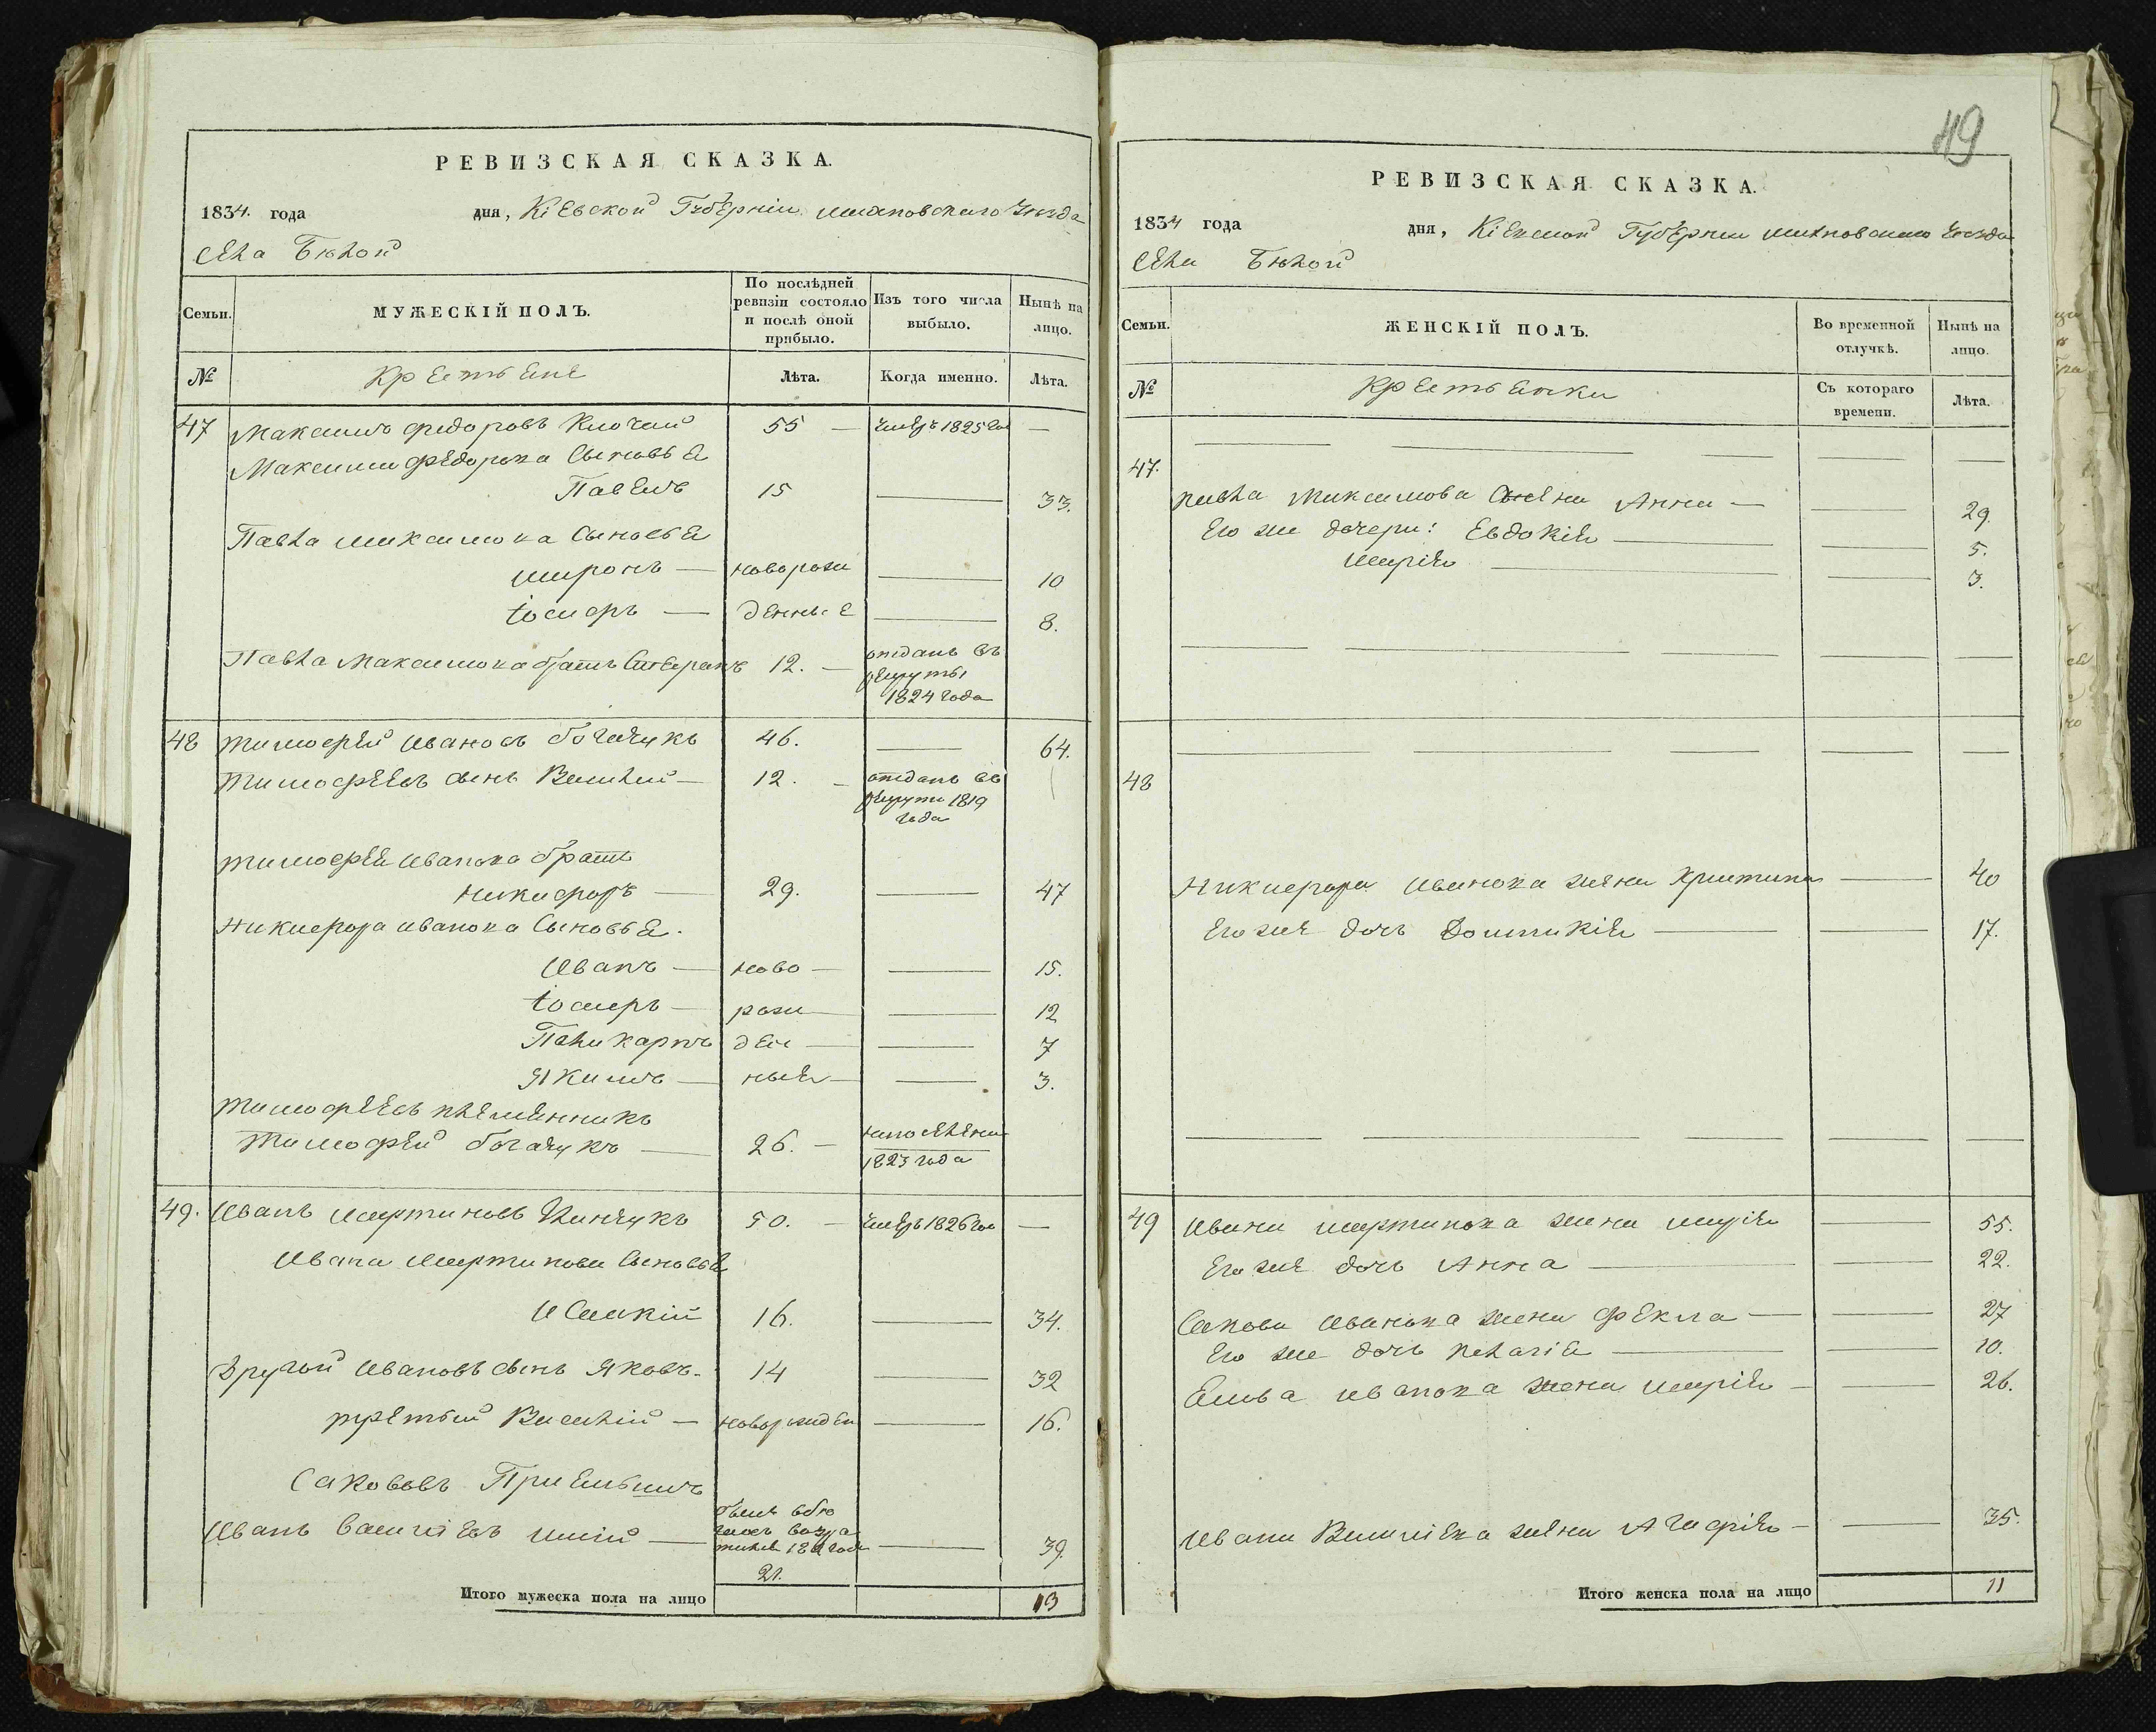 РЕВИЗСКАЯ СКАЗКА.
1834. года дня, Кіевской Губерніи Уезда
села Белой
Семьи. МУЖЕСКІЙ ПОЛЪ. По послѣдней ревизіи состояло и послѣ оной прибыло. Изъ того числа выбыло. Нынѣ на лицо.
№ Крестьяне Лѣта. Когда именно. Лѣта.
47 Максимъ Федоровъ 55 — умеръ 1825 го —
Максима Федорова Сыновья
Павелъ 15 — 33.
Павла Максимова Сыновья
Миронъ — новорож — 10
Іосифъ — денные — 8.
Павла Максимова братъ 12. — отданъ въ
рекруты
1824 года
48 Тимофей Ивановъ Богачукъ 46. — 64.
Тимофеевъ сынъ Василий — 12. — отданъ въ
рекруты 1819
года
Тимофея Иванова братъ
Никифоръ — 29. — 47
Никифора Иванова Сыновья.
Иванъ — ново — — 15.
Іосифъ — рож — — 12
Поликарпъ ден — — 7
Якимъ — ные — — 3.
Тимофеевъ племянникъ
Тимофей Богачукъ — 26. —
1823 года
49. Иванъ Мартиновъ 50. — умеръ 1826 го —
Ивана Мартинова Сыновья
16. — 34.
другой Ивановъ сынъ Яковъ. 14 — 32
третий Василий — новорожден — 16.
Саковъ Приемышъ
Иванъ —
21. — 39.
Итого мужеска пола на лицо 13
49
РЕВИЗСКАЯ СКАЗКА.
1834 года дня, Кіевской Губернии Уезда
села Белой
Семьи. ЖЕНСКІЙ ПОЛЪ. Во временной отлучкѣ. Нынѣ на лицо.
№ Крестьянки Съ котораго времени. Лѣта.
47.
Павла Максимова жена Анна — — 29.
Его же дочери: Евдокія — — 5.
Марія — — 3.
48
Никифора Иванова жена Христина — 40
Его же дочь Домникія — — 17.
49 Ивана Мартинова жена Марія — 55.
Его же дочь Анна — — 22.
Ивановa жена Фекла — — 27
Его же дочь Пелагія — — 10.
Иванова жена Марія — — 26.
Ивана жена Агафія — — 35.
Итого женска пола на лицо 11